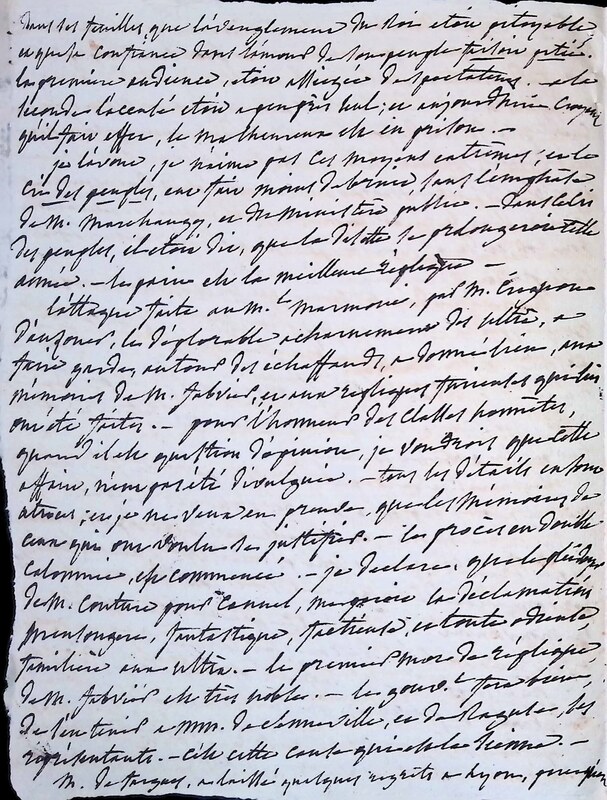 dans ses feuilles, que l'aveuglement du Roi etoit pitoyable
et que sa confiance dans l'amour de son peuple faisoit pitié.
la premiere audience, etoit assiegée de spectateurs. - a la
seconde l'accusé etoit a peu près seul; et aujourd'hui
qu'il fait effet, le malheureux est en prison. -
je l'avoue, je n'aime pas ces moyens extrêmes; et le
cri des peuples, eut fait moins de bruit, sans l'emphase
de M. Marchangy, et du ministère public. - dans le cri
des peuples, il etoit dit, que la
armée. - la prison est la meilleure réplique -
l'attaque faite au M.l Marmont, par M.
le déplorable acharnement des ultra, a
faire guider, autour des échaffauds, a donné lieu, aux
mémoires de M. Fabvier, et aux répliques furieuses qui lui
ont été faites. - pour l'honneur des classes honnêtes,
quand il est question d'opinion, je voudrois que cette
affaire, n'eut pas été divulguée. - tous les détails en sont
atroces; et je ne veux en preuve, que les mémoires de
ceux qui ont voulu se justifier. - le procès en double
calomnie, est commencé. - je déclare, que le plaidoyer
de M. Couture pour Canuel, la déclamation
mensongere, fantastique, factieuse, et toute odieuse
familière aux ultra. - le premier mot de réplique
de M. Fabvier est très noble. - le gouv.t fera bien,
de soutenir a mm. de Senneville, et de Raguse, ses
représentants. - c'est cette cause qui est la sienne. -
M. de a laissé quelques regrets a Lyon,